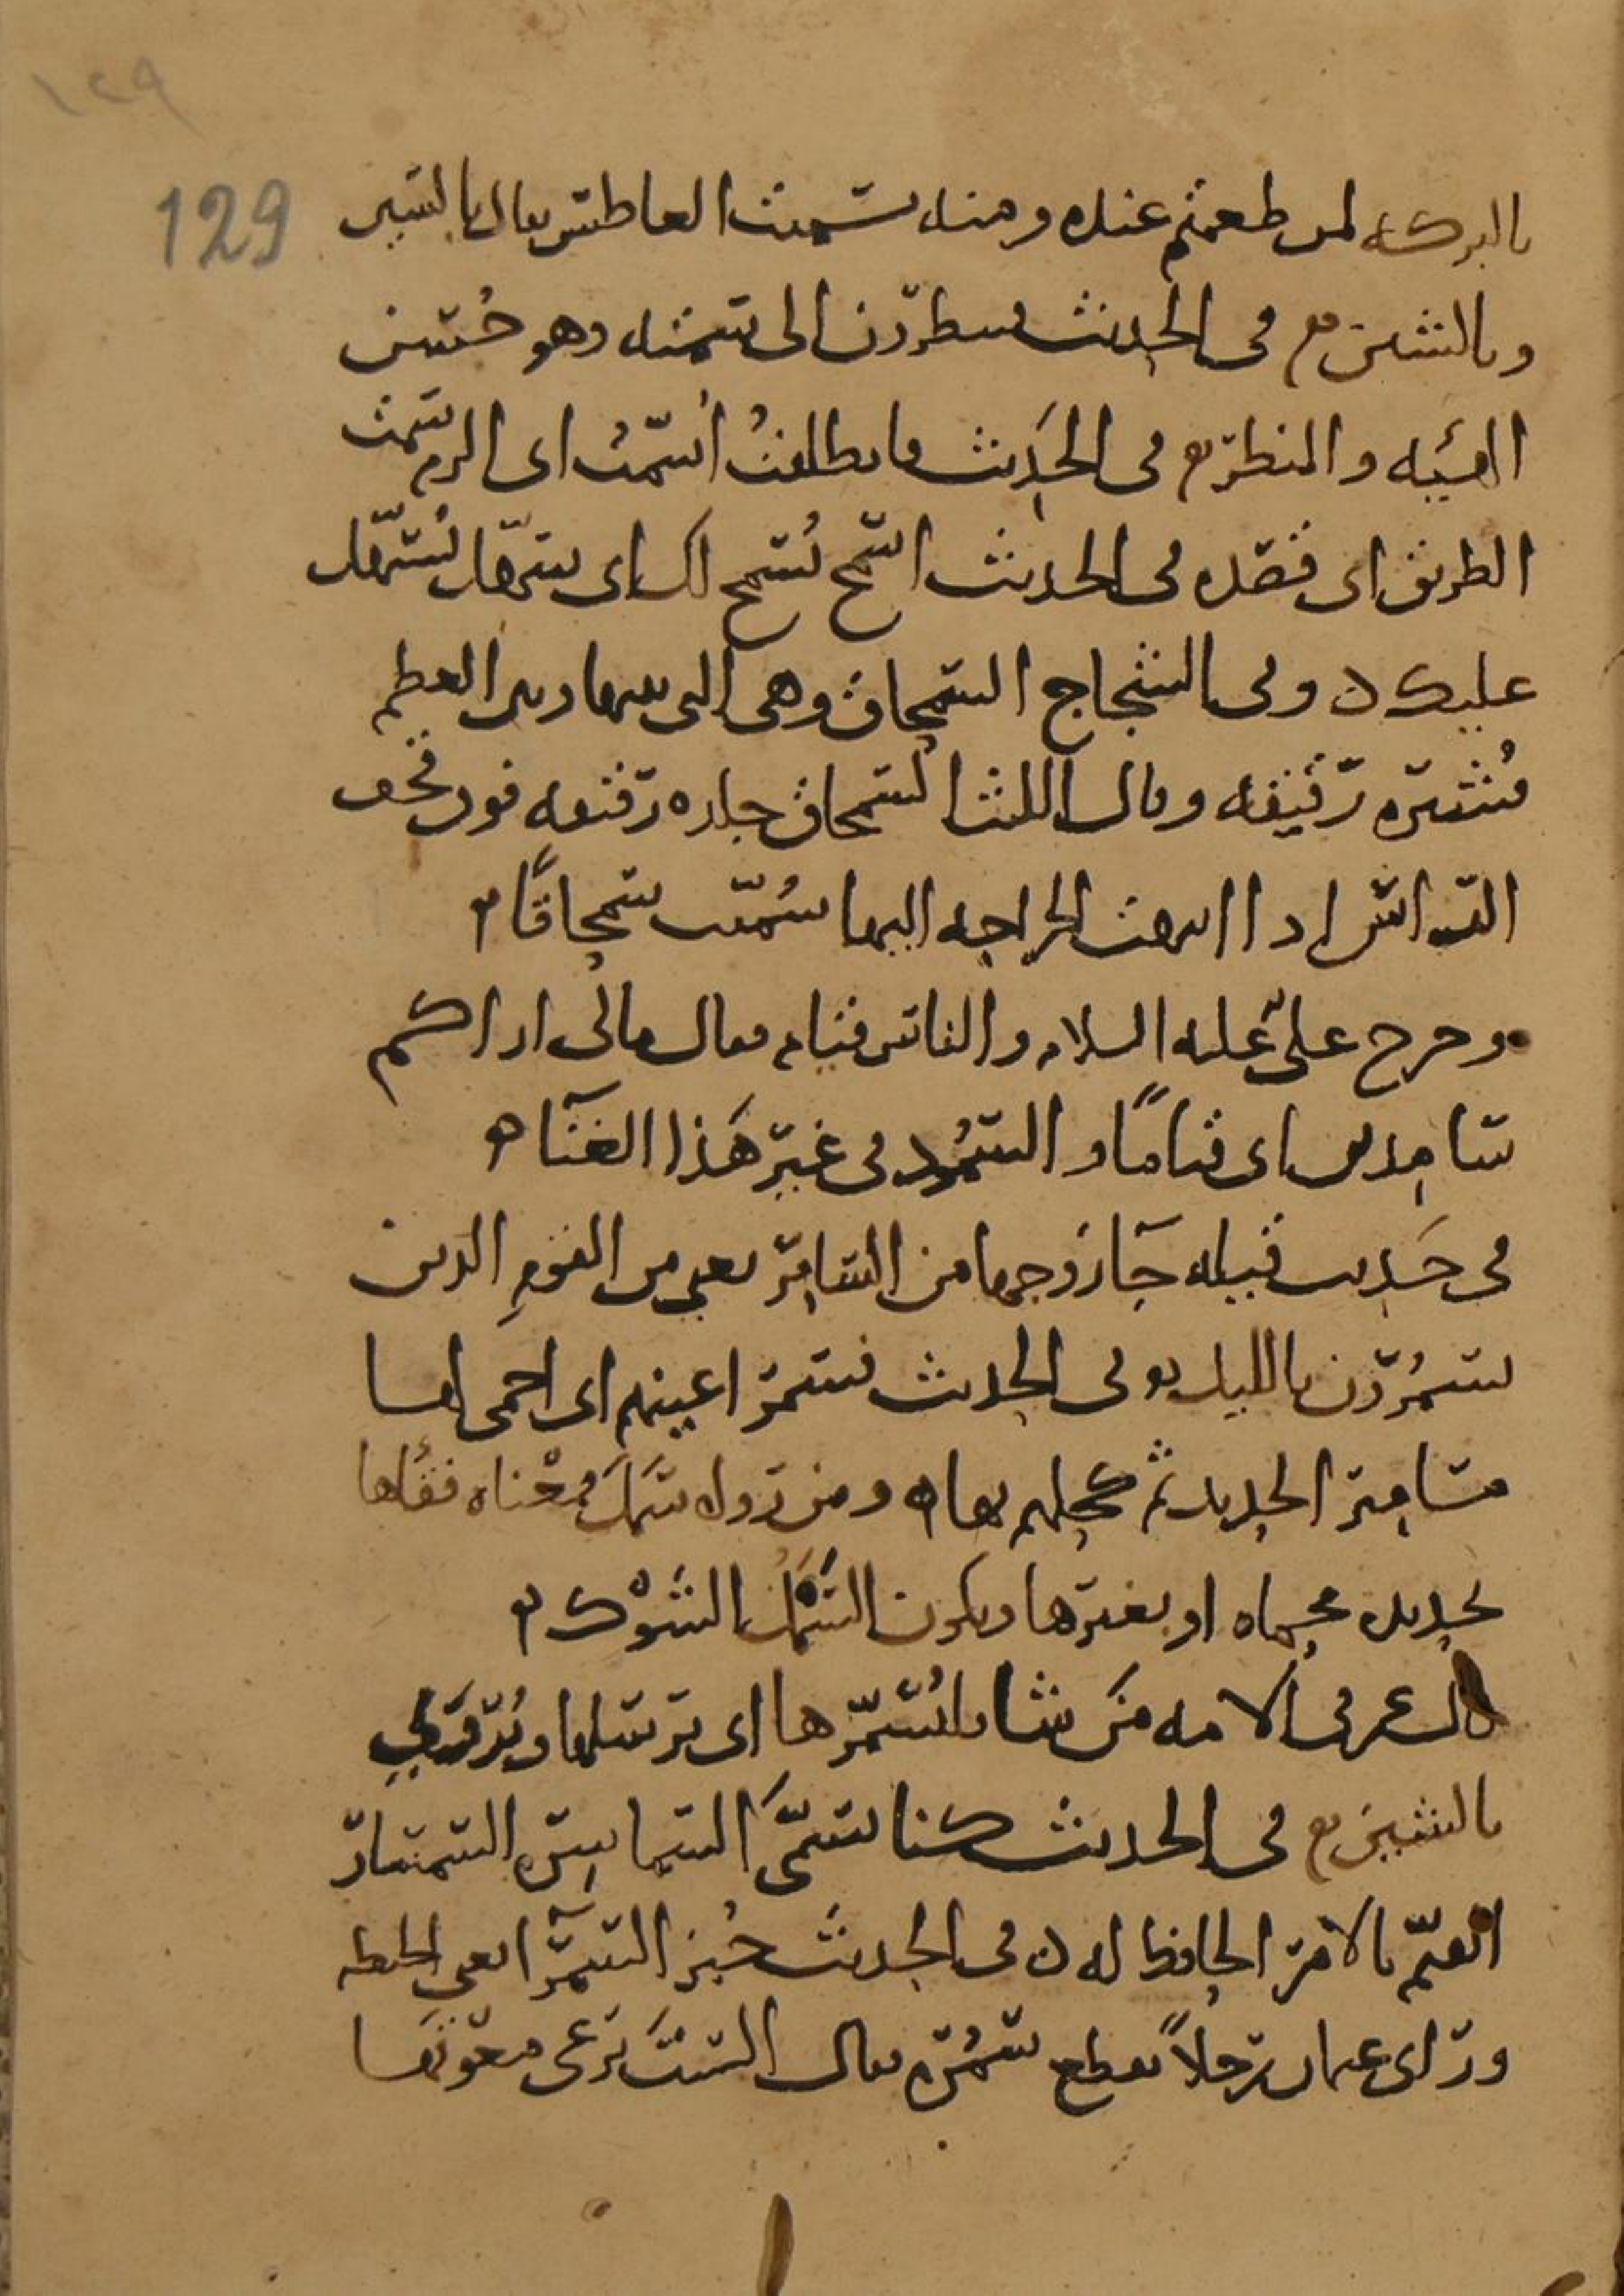 ١٢٩
129
بالبركه لمن طعمتم عنده ومنه تسميت العاطس يقال بالسين
وبالشين في الحديث فينظرون الى سمته وهو حُسن
الهيئه والمنظر في الحَديث فانطلقتُ أتسمّتُ اى الزم سَمت
الطريق اى قصده في الحديث اسمَح يُسمح لك اى سَهّل يُسَهّل
عليك وفي الشجاج السِّمحاق وهي التي بينها وبين العظم
قُشيره رقيقه وقال الليث السمحاق جلده رقيقه فوق قحف
الرّأس إذا انتهت الجراحه اليها سُمّيت سمحاقًا
وخرج علىّ عليه السلام والناس قيام فقال مالى اراكم
سامدين اى قيامًا والسُّمُود في غير هَذا الغنَآ
في حَديث قيله جَآ زوجها من السّامِر يعنى من القوم الذين
يسمُرون بالليل وفي الحديث فسمر اعينهم اى احمى لها
مسامير الحديد ثم كحلهم بها ومن روله سَمَلَ فمعْناه فقأها
بحديده محماه او بغيرها ويكون السَّمْلُ بالشَوْك
قال عمر في الامه مَن شا فليُسَمّرها اى يرسلها ويُروَى
بالشين في الحديث كنا نسمّىَ السماسِره السمسار
القيّم بالامر الحافظ له في الحديث خُبز السمرآ يعنى الحنطه
ورَاى عمان رجلاً يقطع سَمُره فقال السْتَ تَرعى معوتها